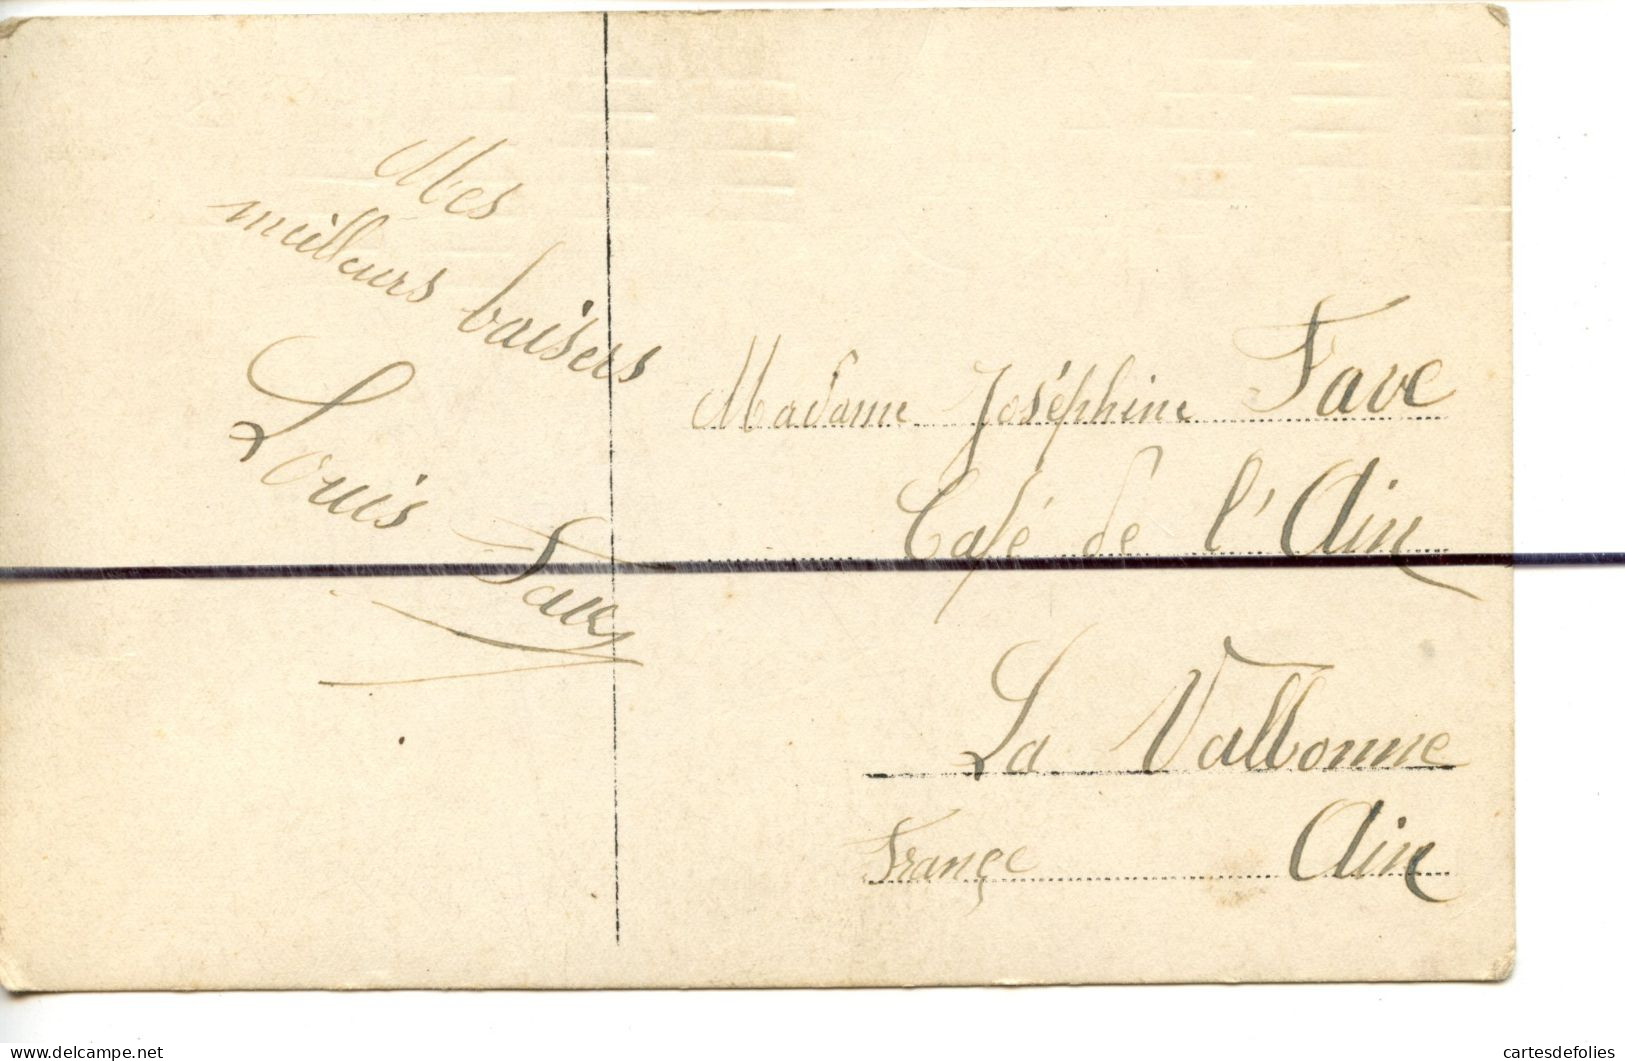 Mes
meilleurs baisers
Louis Fave
Madame Joséphine Fave
Café de l'Ain
La Valbonne
Françe Ain
delcampe.net
cartesdefolies